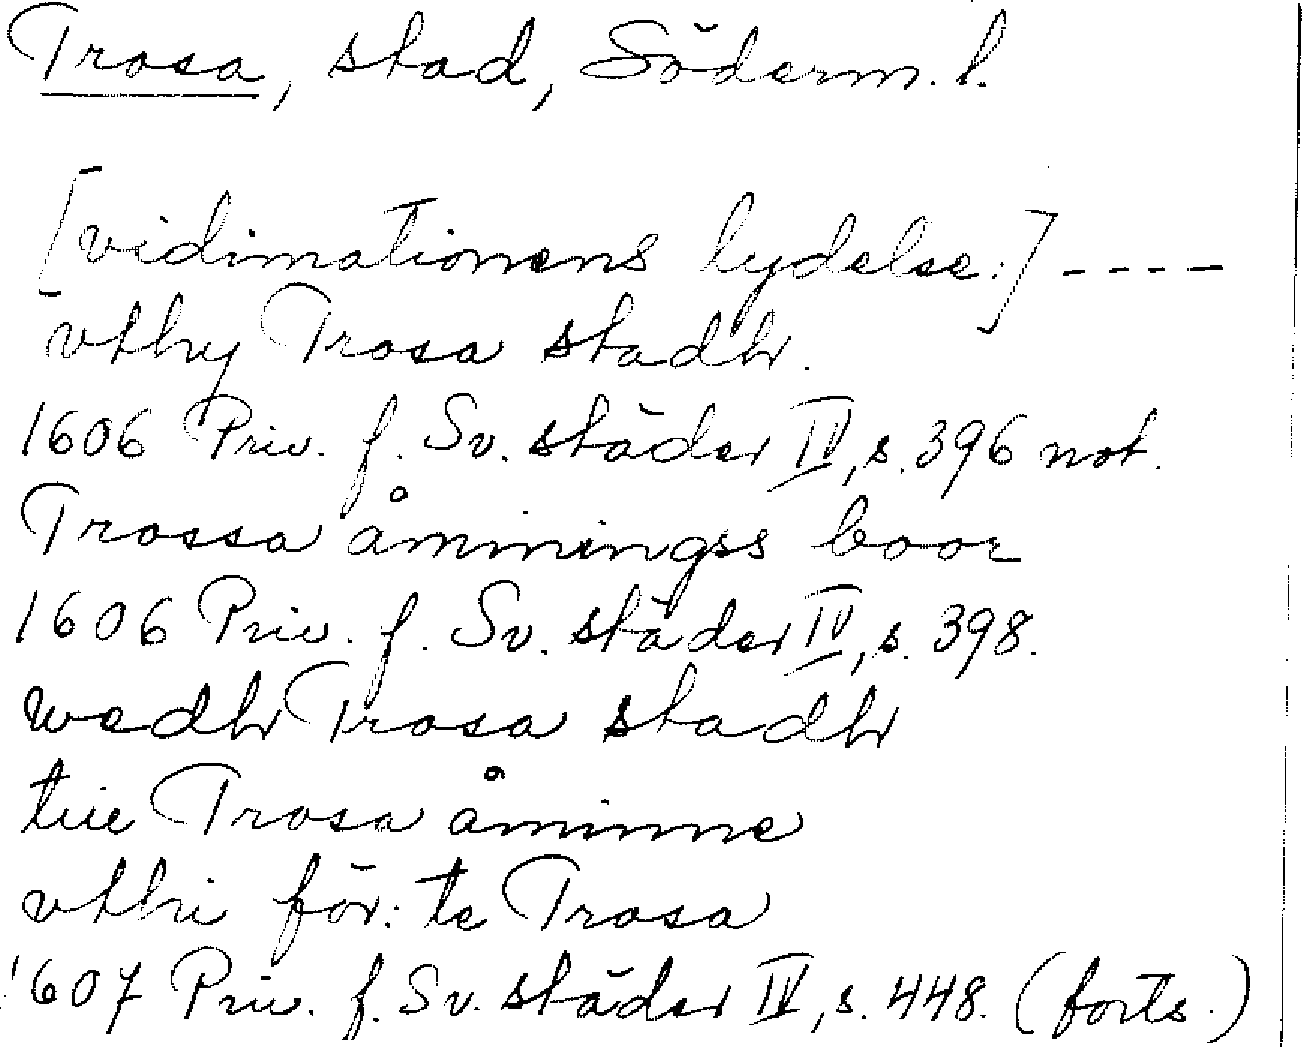 Trosa, stad, Söderm. l.
[vidimationens lydelse:] ----
vthy Trosa stadh.
1606 Priv. f. Sv. städer IV, s. 396 not.
Trossa åmmingss boor
1606 Priv. f. Sv. städer IV, s. 398.
wedh Trosa stadh
tiie Trosa åminne
vthi för: te Trosa
1607 Priv. f. Sv. städer IV, s. 448. (forts.)